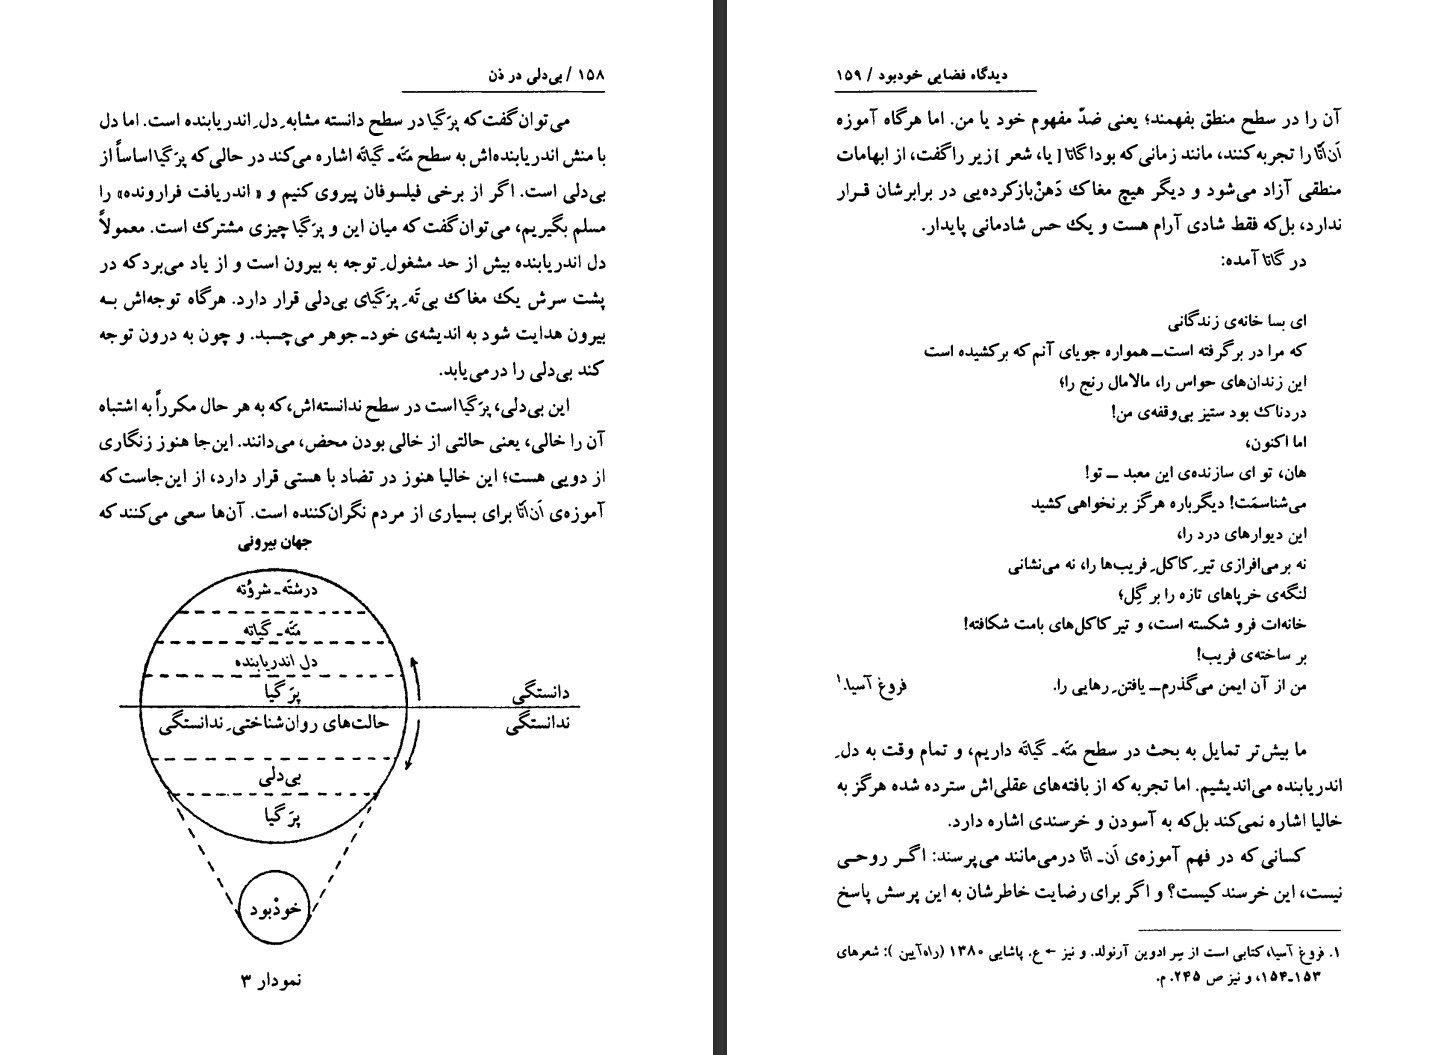 ۱۵۸ / بی‌دلی در ذن
می‌توان گفت که پرَگیا در سطح دانسته مشابهِ دلِ اندریابنده است. اما دل
با منش اندریابنده‌اش به سطح متَه‌ـ گیاتَه اشاره می‌کند در حالی که پرَگیا اساساً از
بی‌دلی است. اگر از برخی فیلسوفان پیروی کنیم و « اندریافت فرارونده» را
مسلم بگیریم، می‌توان گفت که میان این و پرَگیا چیزی مشترک است. معمولاً
دل اندریابنده بیش از حد مشغولِ توجه به بیرون است و از یاد می‌برد که در
پشت سرش یک مغاک بی‌تَهِ پرَگیای بی‌دلی قرار دارد. هرگاه توجه‌اش بـه
بیرون هدایت شود به اندیشه‌ی خود‌ـ جوهر می‌چسبد. و چون به درون توجه
کند بی‌دلی را درمی‌یابد.
این بی‌دلی، پرَگیا است در سطح ندانسته‌اش، که به هر حال مکرراً به اشتباه
آن را خالی، یعنی حالتی از خالی بودن محض، می‌دانند. این‌جا هنوز زنگاری
از دویی هست؛ این خالیا هنوز در تضاد با هستی قرار دارد، از این‌جاست که
آموزه‌ی اَن‌اتّا برای بسیاری از مردم نگران‌کننده است. آن‌ها سعی می‌کنند که
جهان بیرونی
درشتَه‌ـ شروُته
متَه‌ـ گیاته
دل اندریابنده
پرَگیا
دانستگی
ندانستگی
حالت‌های روان‌شناختیِ ندانستگی
بی‌دلی
پرَگیا
خودْبود
نمودار ۳
دیدگاه فضایی خودبود / ۱۵۹
آن را در سطح منطق بفهمند؛ یعنی ضدّ مفهوم خود یا من. اما هرگاه آموزه
اَن‌اتّا را تجربه کنند، مانند زمانی که بودا گاتا [ یا، شعر ] زیر را گفت، از ابهامات
منطقی آزاد می‌شود و دیگر هیچ مغاک دَهنْ‌بازکرده‌یی در برابرشان قـرار
ندارد، بل‌که فقط شادی آرام هست و یک حس شادمانی پایدار.
در گاتا آمده:
ای بسا خانه‌ی زندگانی
که مرا در برگرفته است‌ــ همواره جویای آنم که برکشیده است
این زندان‌های حواس را، مالامال رنج را؛
دردناک بود ستیز بی‌وقفه‌ی من!
اما اکنون،
هان، تو ای سازنده‌ی این معبد ــ تو!
می‌شناسمَت! دیگرباره هرگز برنخواهی کشید
این دیوارهای درد را،
نه برمی‌افرازی تیرِ کاکلِ فریب‌ها را، نه می‌نشانی
لنگه‌ی خرپاهای تازه را بر گِل؛
خانه‌ات فرو شکسته است، و تیر کاکل‌های بامت شکافته!
بر ساخته‌ی فریب!
من از آن ایمن می‌گذرم‌ــ یافتنِ رهایی را. فروغ آسیا.۱
ما بیش‌تر تمایل به بحث در سطح متَه‌ـ گیاتَه داریم، و تمام وقت به دلِ
اندریابنده می‌اندیشیم. اما تجربه که از بافته‌های عقلی‌اش سترده شده هرگز به
خالیا اشاره نمی‌کند بل‌که به آسودن و خرسندی اشاره دارد.
کسانی که در فهم آموزه‌ی اَن‌ـ اتّا درمی‌مانند می‌پرسند: اگـر روحـی
نیست، این خرسند کیست؟ و اگر برای رضایت خاطرشان به این پرسش پاسخ
۱. فروغ آسیا، کتابی است از سِر ادوین آرنولد. و نیز ← ع. پاشایی ۱۳۸۰ (راه آیین ): شعرهای
۱۵۳ـ۱۵۴، و نیز ص ۲۴۵. م.